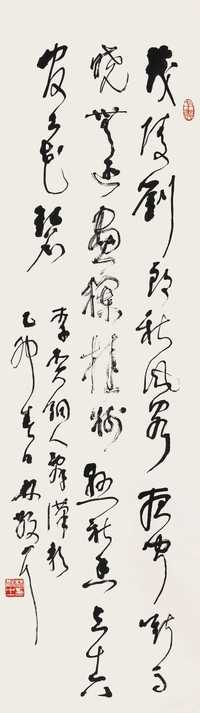 茂陵劉郎秋風客夜聞嘶馬
曉無迹畫欄桂樹懸秋香三十六
宮土花碧
李賀銅人辭漢歌
乙卯春日林散耳